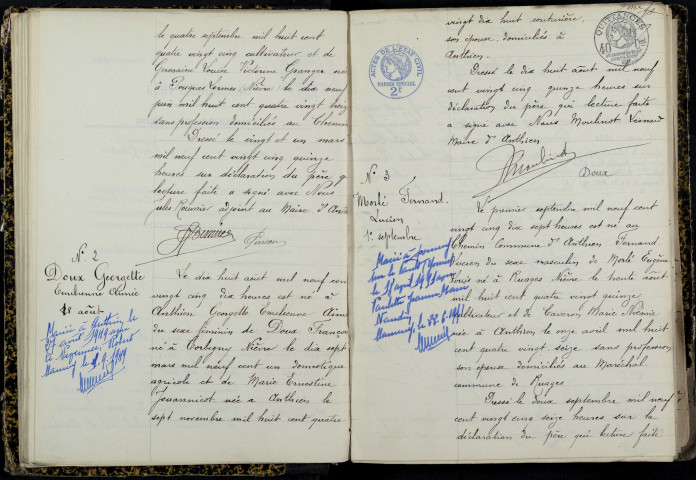 le quatre septembre mil huit cent
quatre vingt cinq cultivateur et de
Germaine Louise Victorine Granger née
à Pougues Nièvre le dix neuf
juin mil huit cent quatre vingt
sans profession domiciliés au Chemin
Dressé le vingt et un mars
mil neuf cent vingt cinq quinze
heures sur déclaration du père q
lecture faite a signé avec Nous
adjoint au Maire d'Anth
N. 2
Doux Georgette
Emilienne Aimée
18 août
Mariée à
avril 1949
le 9.9.1949
Le dix huit août mil neuf cen
vingt cinq dix heures est né à
Anthien Georgette Emilienne Aimé
du sexe féminin de Doux François
né à Corbigny Nièvre le dix sept
mars mil neuf cent un domestique
agricole et de Marie Ernestine
Jouannicot née à Anthien le
sept novembre mil huit cent quatre
vingt dix huit couturière,
son épouse domiciliés à
Anthien
Dressé le dix huit août mil neuf
cent vingt cinq quinze heures sur
déclaration du père qui lecture faite
a signé avec Nous Moulinot Léonard
Maire d'Anthien
Moulinot
Doux
ACTES DE L'ETAT CIVIL
PAPIER SPECIAL
2F
QUITTANCES
40
N. 3
Morlé Fernand
Lucien
1er septembre
Marié à
le avril 1951
Paulette Jeanne
Le premier septembre mil neuf cent
vingt cinq dix sept heures est né au
Chemin Commune d'Anthien Fernand
Lucien du sexe masculin de Morlé Eugène
né à Ruages Nièvre le trente août
mil huit cent quatre vingt quinze
cultivateur et de Marie
née à Anthien le onze avril mil huit
cent quatre vingt seize sans profession
son épouse domiciliés au Maréchal
commune de Ruages
Dressé le deux septembre mil neuf
cent vingt cinq seize heures sur la
déclaration du père qui lecture faite